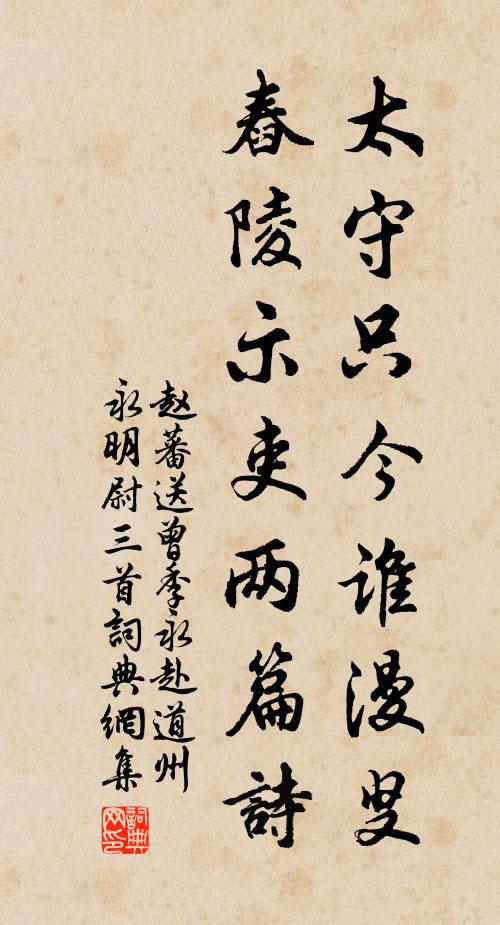 太守只今谁漫叟
舂陵示吏两篇詩
赵蕃送曾季永赴道州
永明尉三首詞典網集
詞典网印